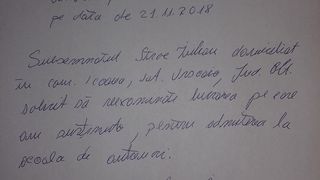 pe data de 21.11.2018
Subsemnatul Stroe Iulian domiciliat
în com. Icoana, sat. Ursoaia, Jud. Olt.
solicit să lucrarea pe care
am susținut, pentru admiterea la
școala de